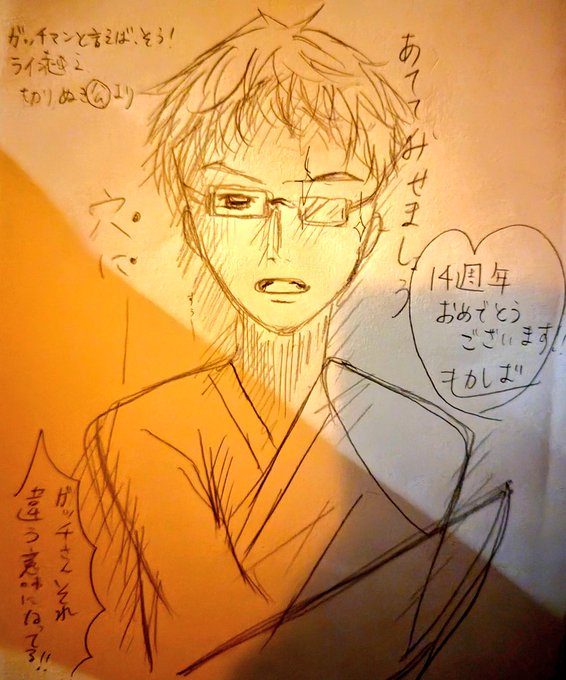 ガッチマンと言えば、そう!
切りぬき㋰より
あててみせましょう
穴に
14週年
おめでとう
ございます!!
もかしば
ガッチさんそれ
違う意味になってる!!